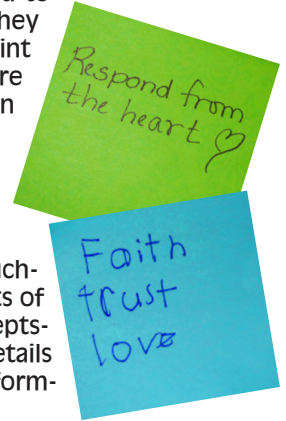 hey
int
re
n
Respond from
the heart ♡
uch-
ts of
epts-
etails
form-
Faith
trust
love